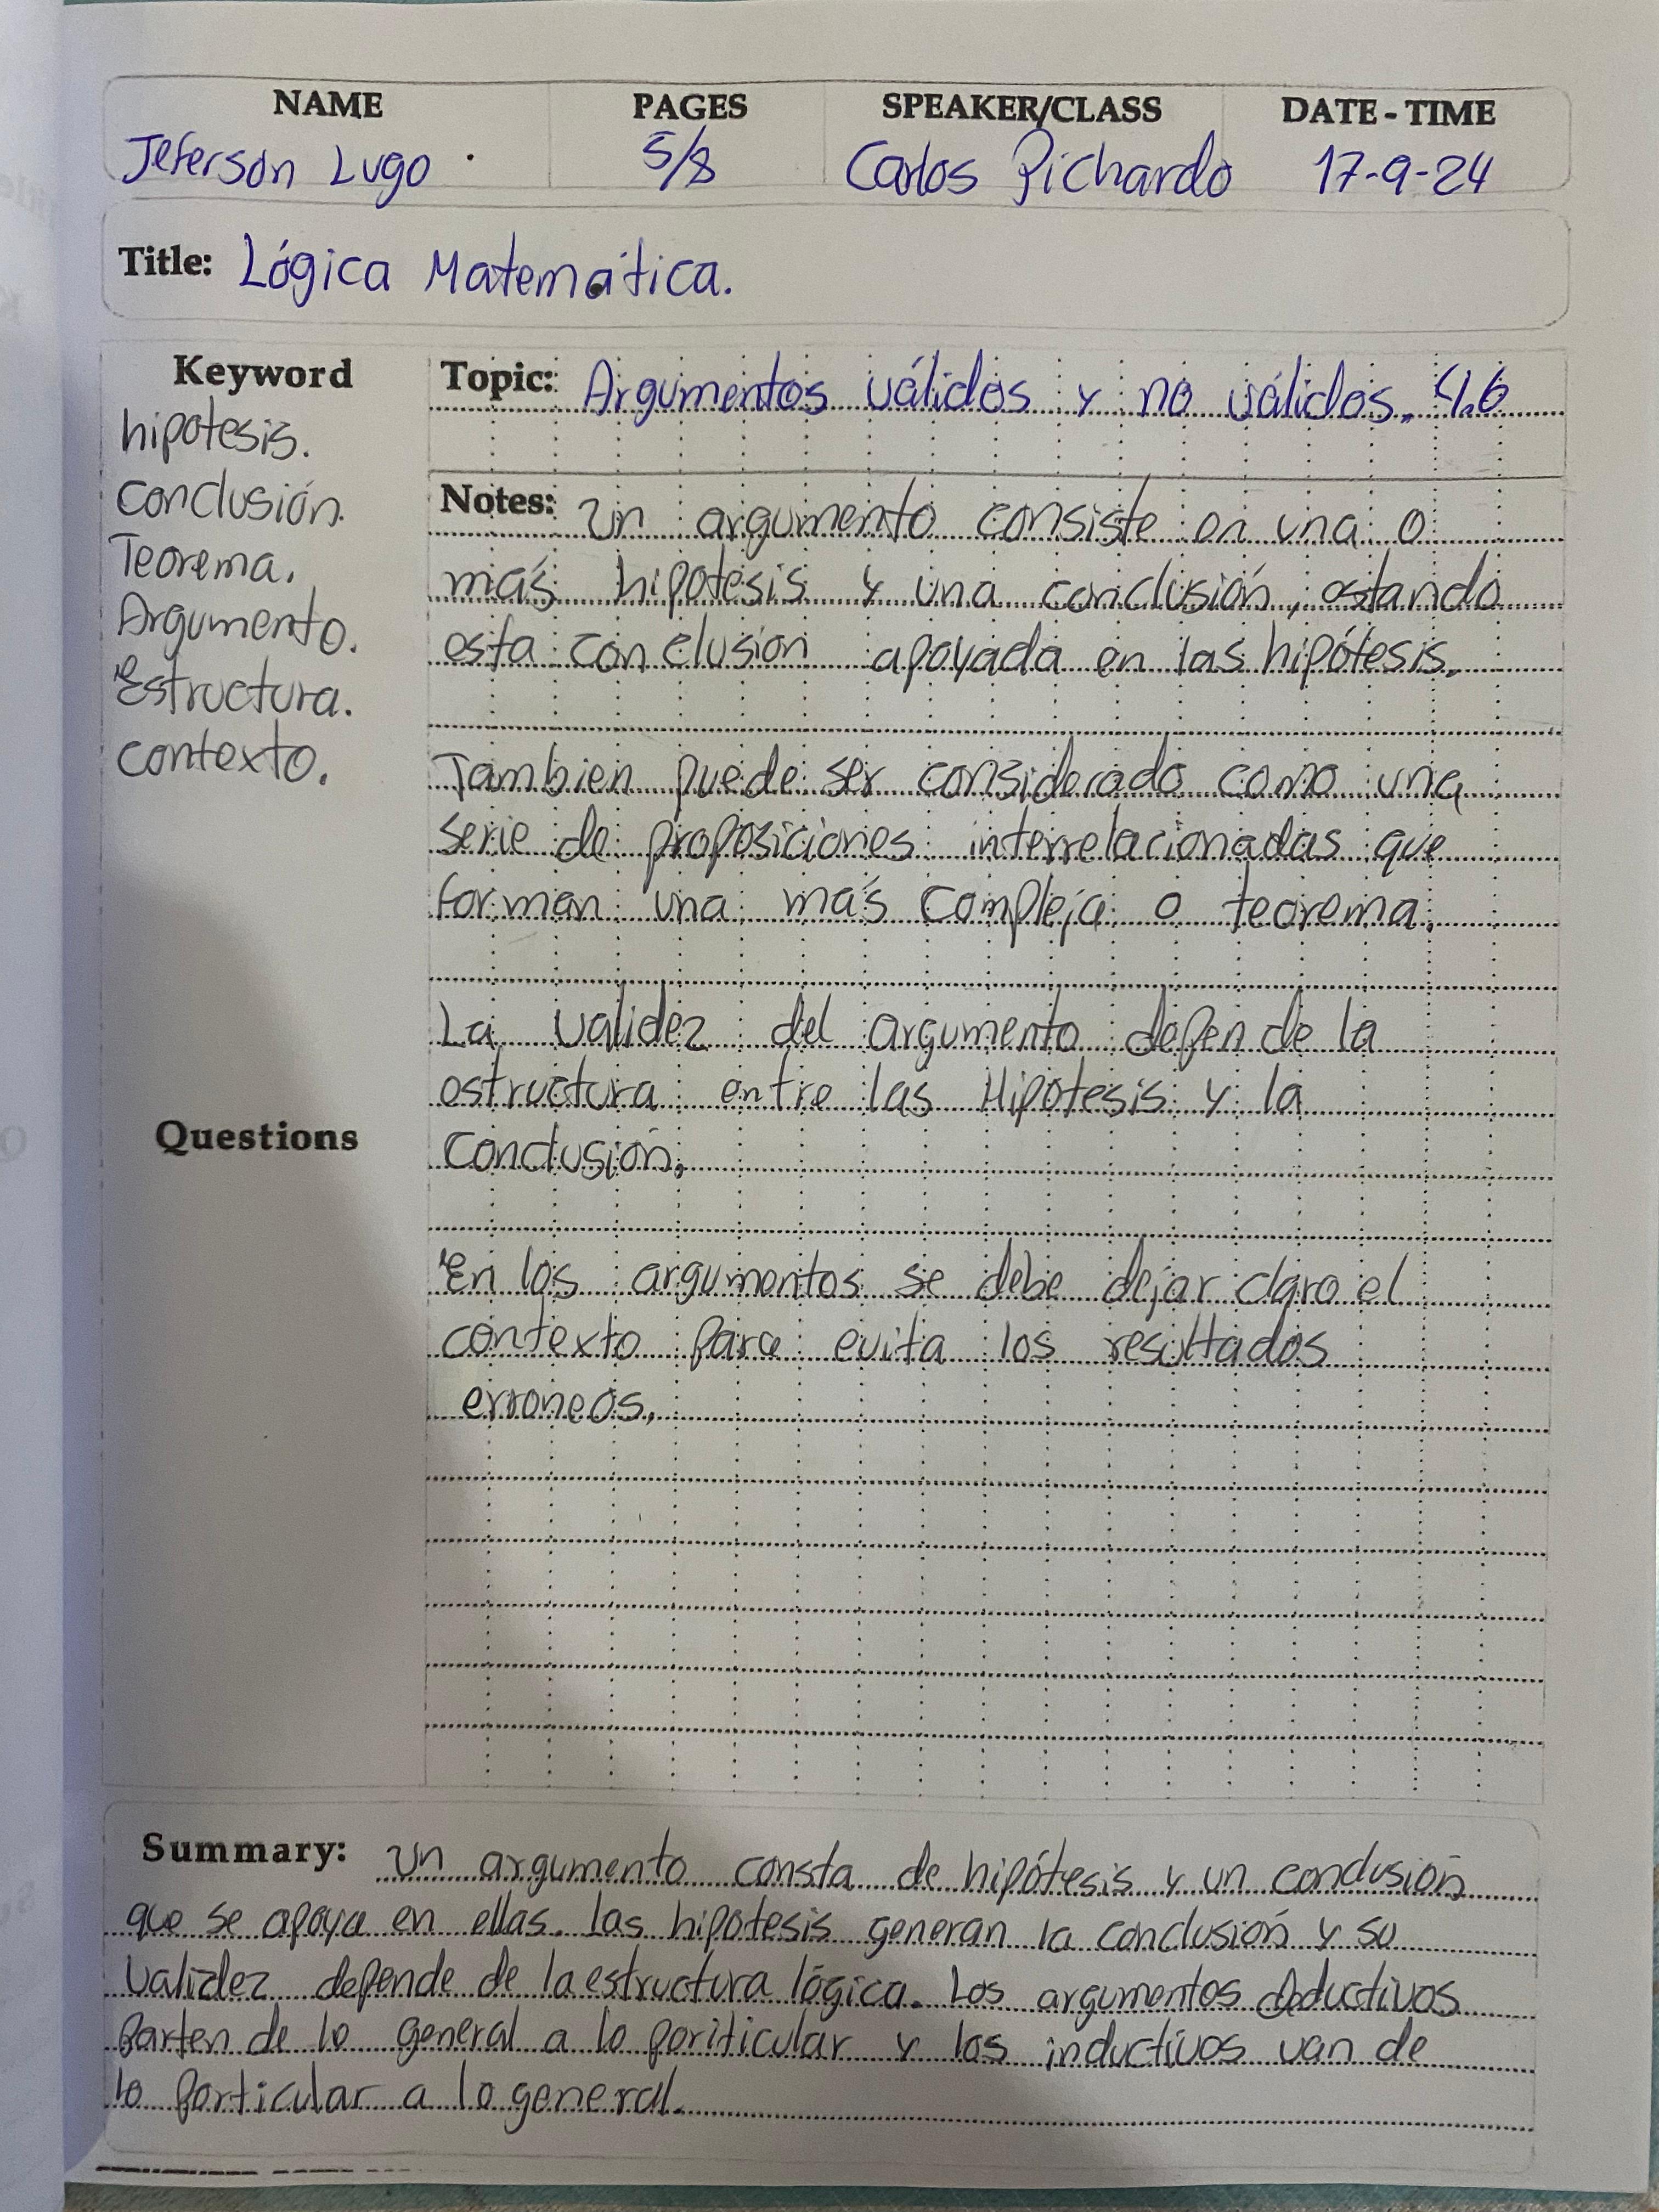 NAME PAGES SPEAKER/CLASS DATE - TIME
Jeferson Lugo. 5/8 Carlos Pichardo 17-9-24
Title: Lógica Matemática.
Keyword
hipotesis.
Conclusión.
Teorema.
Argumento.
Estructura.
contexto.
Questions
Topic: Argumentos válidos y no válidos. 4.6
Notes: Un argumento consiste en una o
más hipotesis y una conclusión, estando
esta conclusion apoyada en las hipótesis.
Tambien puede ser considerado como una
serie de proposiciones interrelacionadas que
forman una más compleja o teorema.
La validez del argumento depende la
estructura entre las Hipotesis y la
Conclusión.
En los argumentos se debe dejar claro el
contexto para evita los resultados
erroneos.
Summary: Un argumento consta de hipótesis y un conclusión
que se apoya en ellas. las hipotesis generan la conclusión y su
validez depende de la estructura lógica. Los argumentos deductivos
Parten de lo general a lo poriticular y los inductivos van de
lo particular a lo general.